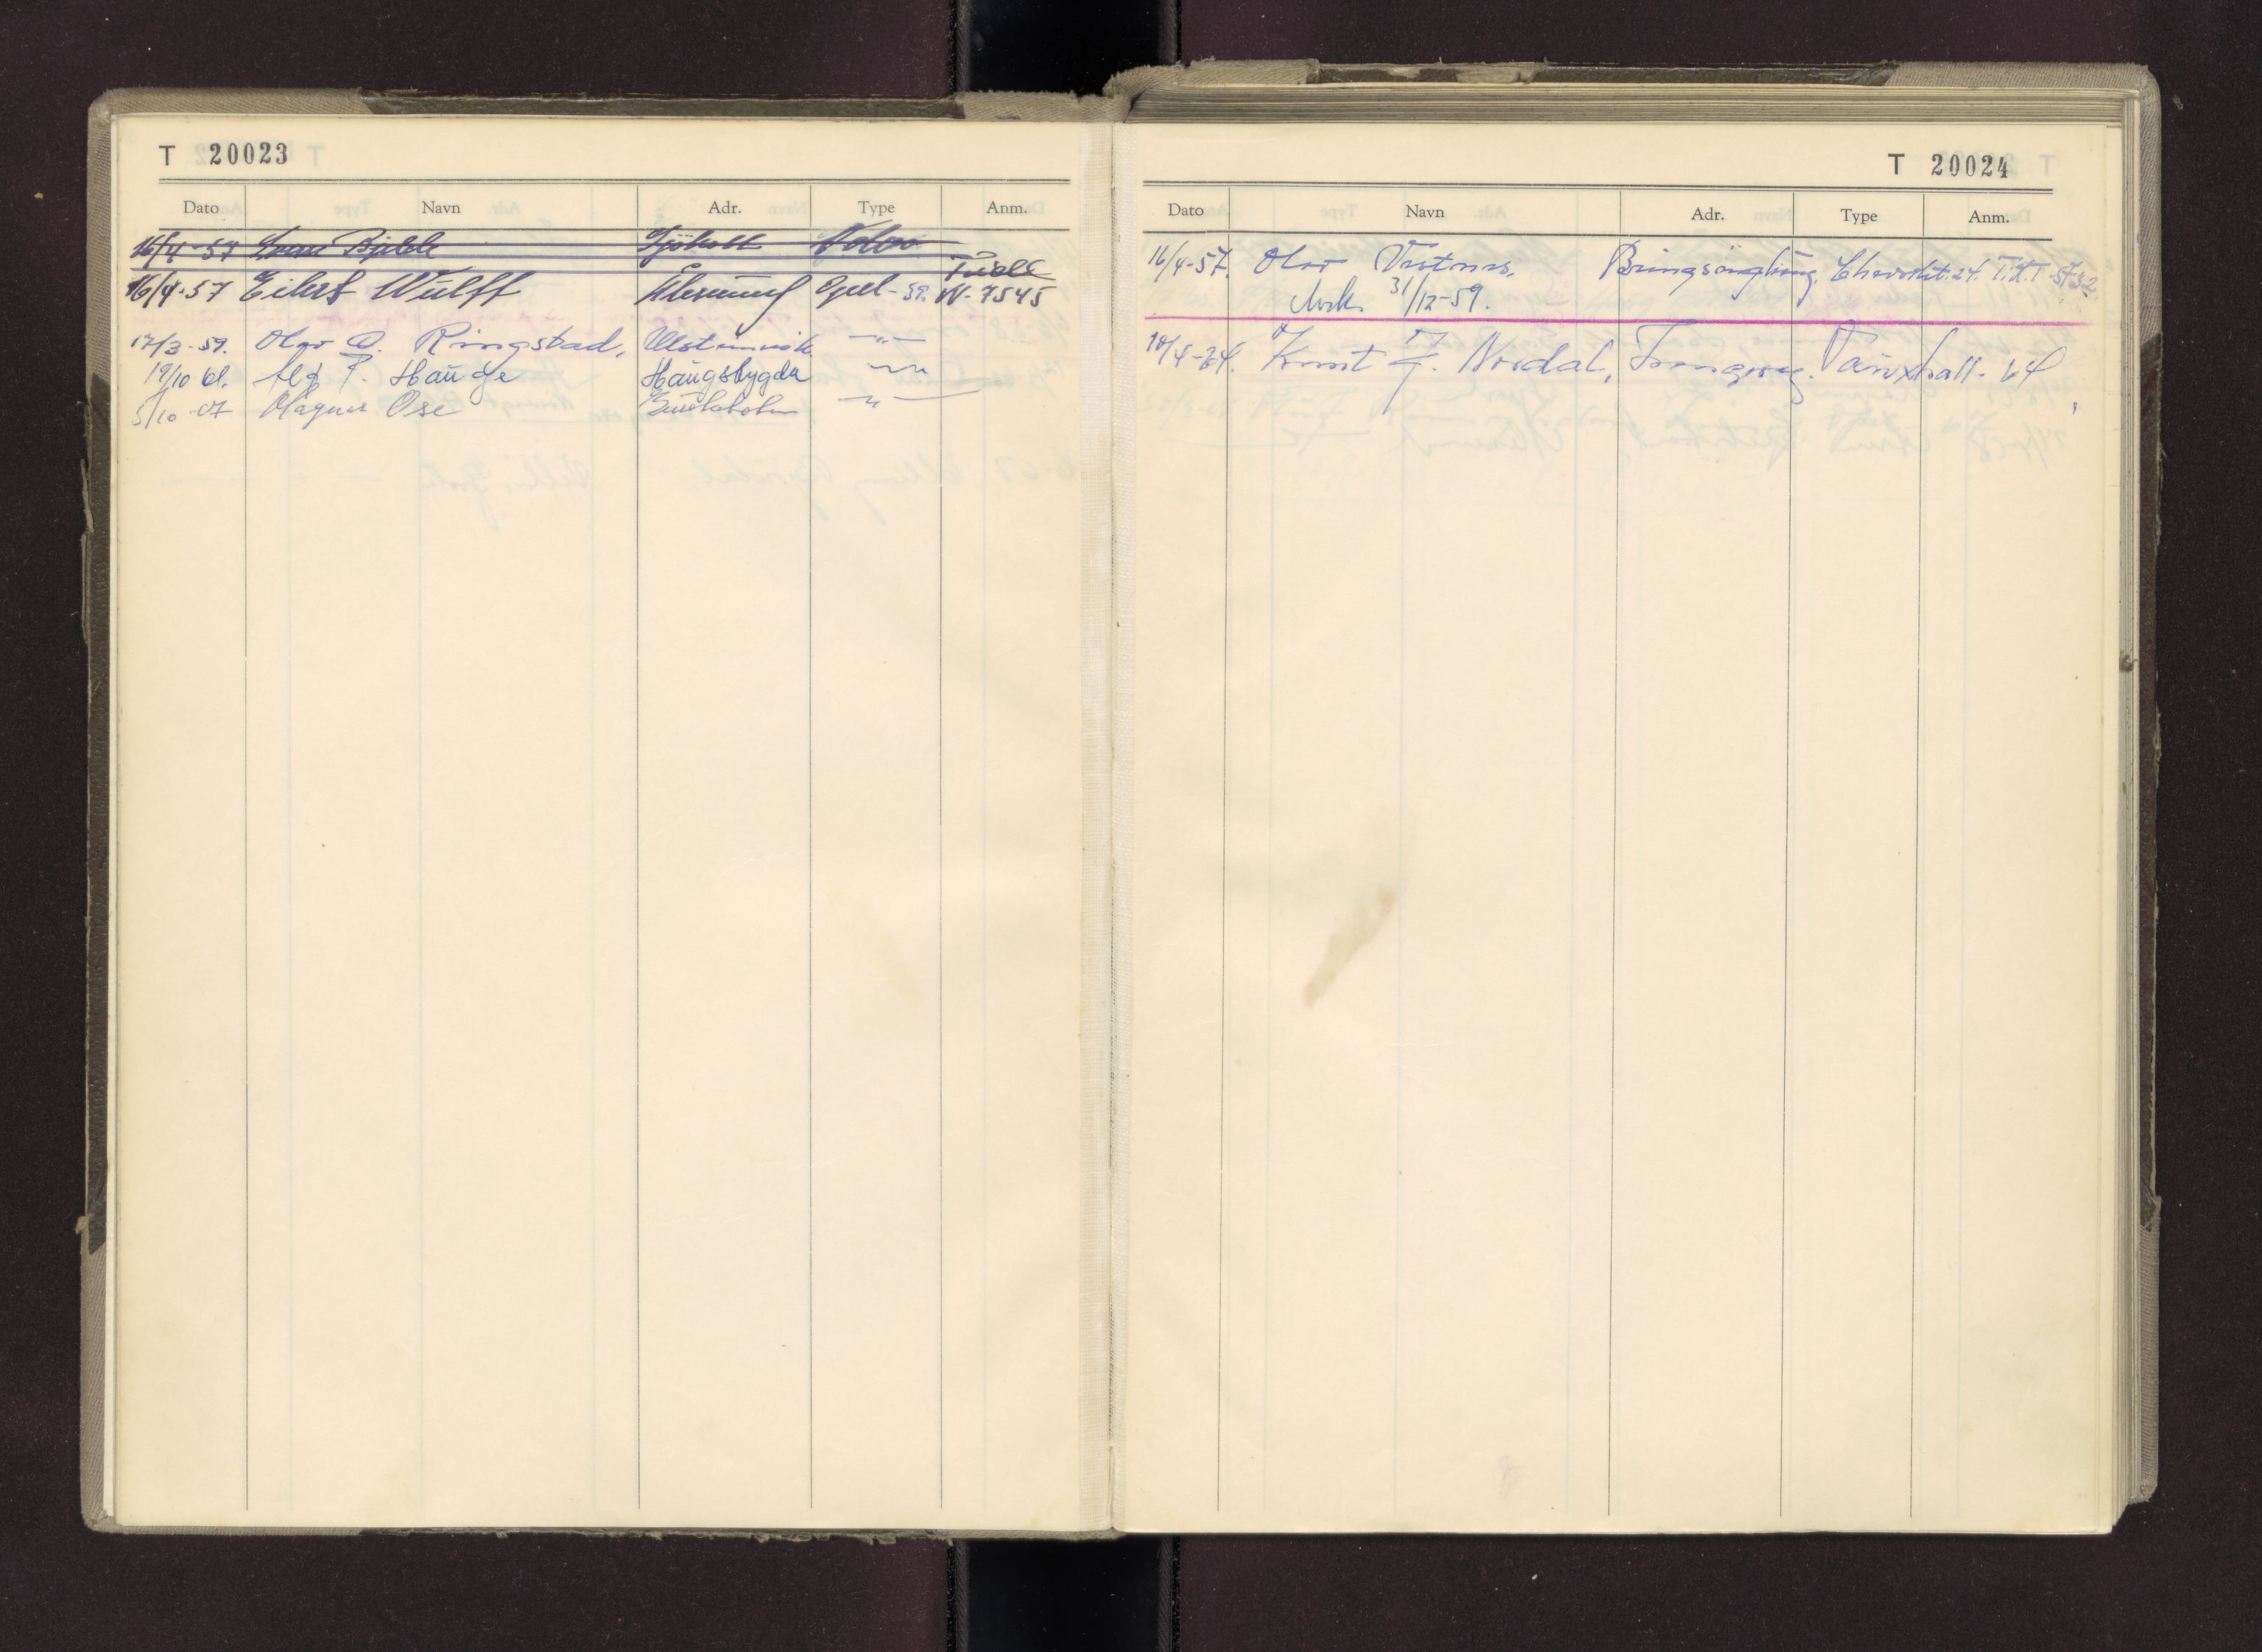 T 20023
Dato Navn Adr. Type Anm.
16/4-57 Bjelde Sjøholt Volvo
16/4-57 Eilert Wulff Ålesund Opel-39. W-7545
17/3-59. Olav O. Ringstad, Ulsteinvik —„—
19/10 61. Alf P. Hauge Haugsbygda —„—
5/10-67 Magnus Ose —„—
T 20024
Dato Navn Adr. Type Anm.
16/4-57. Olav Vestnes, Chevrolet. 24. T.H.T-5732
Avsk. 31/12-59.
10/4-64. Knut J. Nordal, Vauxhall-64